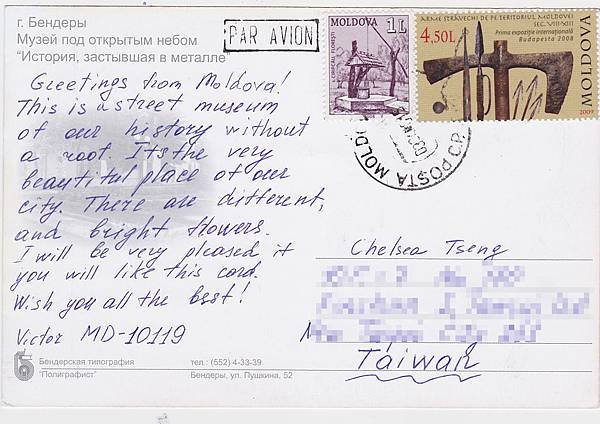 г. Бендеры
Музей под открытым небом
"История, застывшая в металле"
PAR AVION
MOLDOVA 1L
ARME STRĂVECHI DE PE TERITORIUL MOLDOVEI
SEC. VIII-XIII
4,50L
Prima expoziţie internaţională
Budapesta 2008
MOLDOVA
2009
POSTA MOLDO
C.P.
Greetings from Moldova!
This is a street museum
of our history without
a roof. Its the very
beautiful place of our
city. There are different,
and bright flowers.
I will be very pleased if
you will like this card.
Wish you all the best!
Victor MD-10119
Chelsea Tseng
Taiwan
Бендерская типография
"Полиграфист"
тел.: (552) 4-33-39
Бендеры, ул. Пушкина, 52